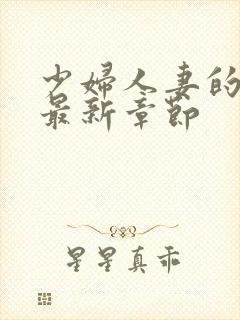 少婦人妻的
最新章節
星星真乖